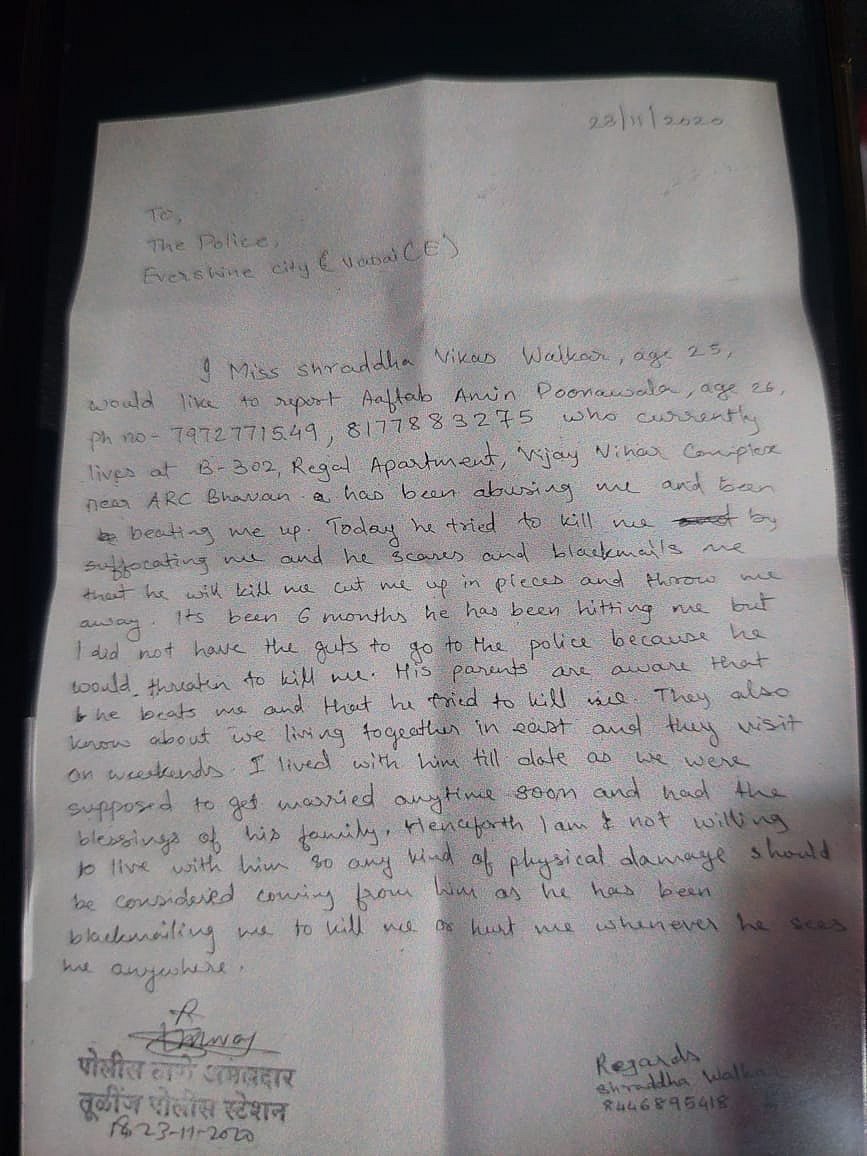 23/11/2020
To,
The Police,
Evershine city (Vasai (E)
I Miss Shraddha Vikas Walkar, age 25,
would like to report Aaftab Amin Poonawala, age 26,
ph no- 7972771549, 8177883275 who currently
lives at B-302, Regal Apartment, Vijay Vihar Complex
near ARC Bhavan has been abusing me and been
beating me up. Today he tried to kill me by
suffocating me and he scares and blackmails me
that he will kill me cut me up in pieces and throw me
away. Its been 6 months he has been hitting me but
I did not have the guts to go to the police because he
would threaten to kill me. His parents are aware that
he beats me and that he tried to kill me. They also
know about we living togeather in east and they visit
on weekends. I lived with him till date as we were
supposed to get married anytime soon and had the
blessings of his family. Henceforth I am not willing
to live with him so any kind of physical damage should
be considered coming from him as he has been
blackmailing me to kill me or hurt me whenever he sees
me anywhere.
Regards
Shraddha Walkar
8446895418
पोलीस ठाणे अंमलदार
तूळींज पोलीस स्टेशन
23-11-2020